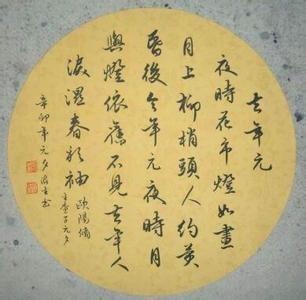 去年元
夜時花市燈如晝
月上柳梢頭人約黃
昏後今年元夜時月
與燈依舊不見去年人
淚濕春衫袖
歐陽脩
生查子元夕
辛卯年元夕書